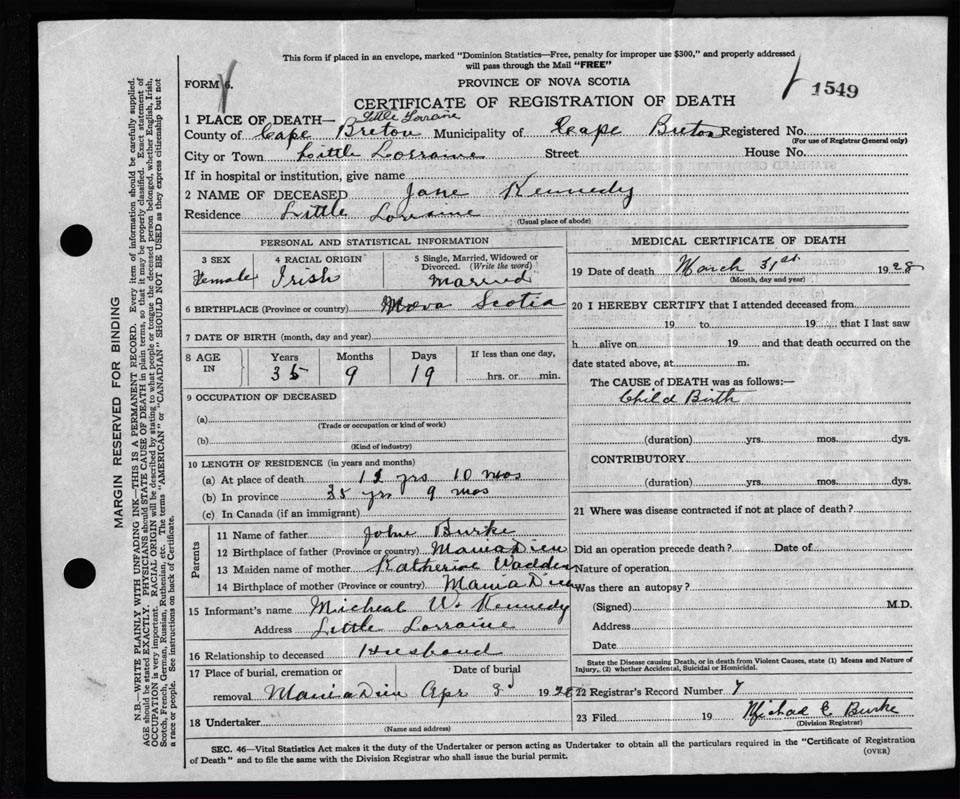 This form if placed in an envelope, marked "Dominion Statistics—Free, penalty for improper use $300," and properly addressed
will pass through the Mail "FREE"
FORM 6.
PROVINCE OF NOVA SCOTIA
1549
CERTIFICATE OF REGISTRATION OF DEATH
1 PLACE OF DEATH— Little Lorraine
County of Cape Breton Municipality of Cape Breton Registered No.
(For use of Registrar General only)
City or Town Little Lorraine Street House No.
If in hospital or institution, give name
2 NAME OF DECEASED Jane Kennedy
Residence Little Lorraine
(Usual place of abode)
PERSONAL AND STATISTICAL INFORMATION
3 SEX 4 RACIAL ORIGIN 5 Single, Married, Widowed or Divorced. (Write the word)
Female Irish Married
6 BIRTHPLACE (Province or country) Nova Scotia
7 DATE OF BIRTH (month, day and year)
8 AGE IN Years Months Days If less than one day,
35 9 19 hrs. or min.
9 OCCUPATION OF DECEASED
(a)
(Trade or occupation or kind of work)
(b)
(Kind of industry)
10 LENGTH OF RESIDENCE (in years and months)
(a) At place of death yrs 10 mos
(b) In province 35 yrs 9 mos
(c) In Canada (if an immigrant)
Parents
11 Name of father John Burke
12 Birthplace of father (Province or country)
13 Maiden name of mother Katherine Wadden
14 Birthplace of mother (Province or country)
15 Informant's name Micheal W. Kennedy
Address Little Lorraine
16 Relationship to deceased Husband
17 Place of burial, cremation or Date of burial
removal Apr 3 1928
18 Undertaker
(Name and address)
MEDICAL CERTIFICATE OF DEATH
19 Date of death March 31st 1928
(Month, day and year)
20 I HEREBY CERTIFY that I attended deceased from
19 to 19 that I last saw
h alive on 19 and that death occurred on the
date stated above, at m.
The CAUSE of DEATH was as follows:—
Child Birth
(duration) yrs. mos. dys.
CONTRIBUTORY.
(duration) yrs. mos. dys.
21 Where was disease contracted if not at place of death?
Did an operation precede death? Date of
Nature of operation
Was there an autopsy?
(Signed) M.D.
Address
Date
State the Disease causing Death, or in death from Violent Causes, state (1) Means and Nature of
Injury, (2) whether Accidental, Suicidal or Homicidal.
22 Registrar's Record Number 7
23 Filed 19 Michael E Burke
(Division Registrar)
SEC. 46—Vital Statistics Act makes it the duty of the Undertaker or person acting as Undertaker to obtain all the particulars required in the "Certificate of Registration
of Death" and to file the same with the Division Registrar who shall issue the burial permit.
(OVER)
MARGIN RESERVED FOR BINDING
N.B.—WRITE PLAINLY WITH UNFADING INK—THIS IS A PERMANENT RECORD. Every item of information should be carefully supplied.
AGE should be stated EXACTLY. PHYSICIANS should STATE CAUSE OF DEATH in plain terms, so that it may be properly classified. Exact statement of
OCCUPATION is very important. RACIAL ORIGIN will be described by stating to what people or tongue the deceased person belonged, whether English, Irish,
Scotch, French, German, Russian, Ruthenian, etc. The terms "AMERICAN" or "CANADIAN" SHOULD NOT BE USED as they express citizenship but not
a race or people. See instructions on back of Certificate.